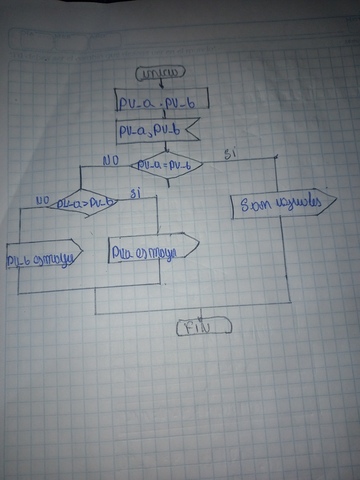 inicio
PV-a, PV-b
PV-a, PV-b
NO
PV-a=PV-b
Si
NO
PV-a>PV-b
Si
Son iguales
PV-b es mayor
PVa es mayor
FiN